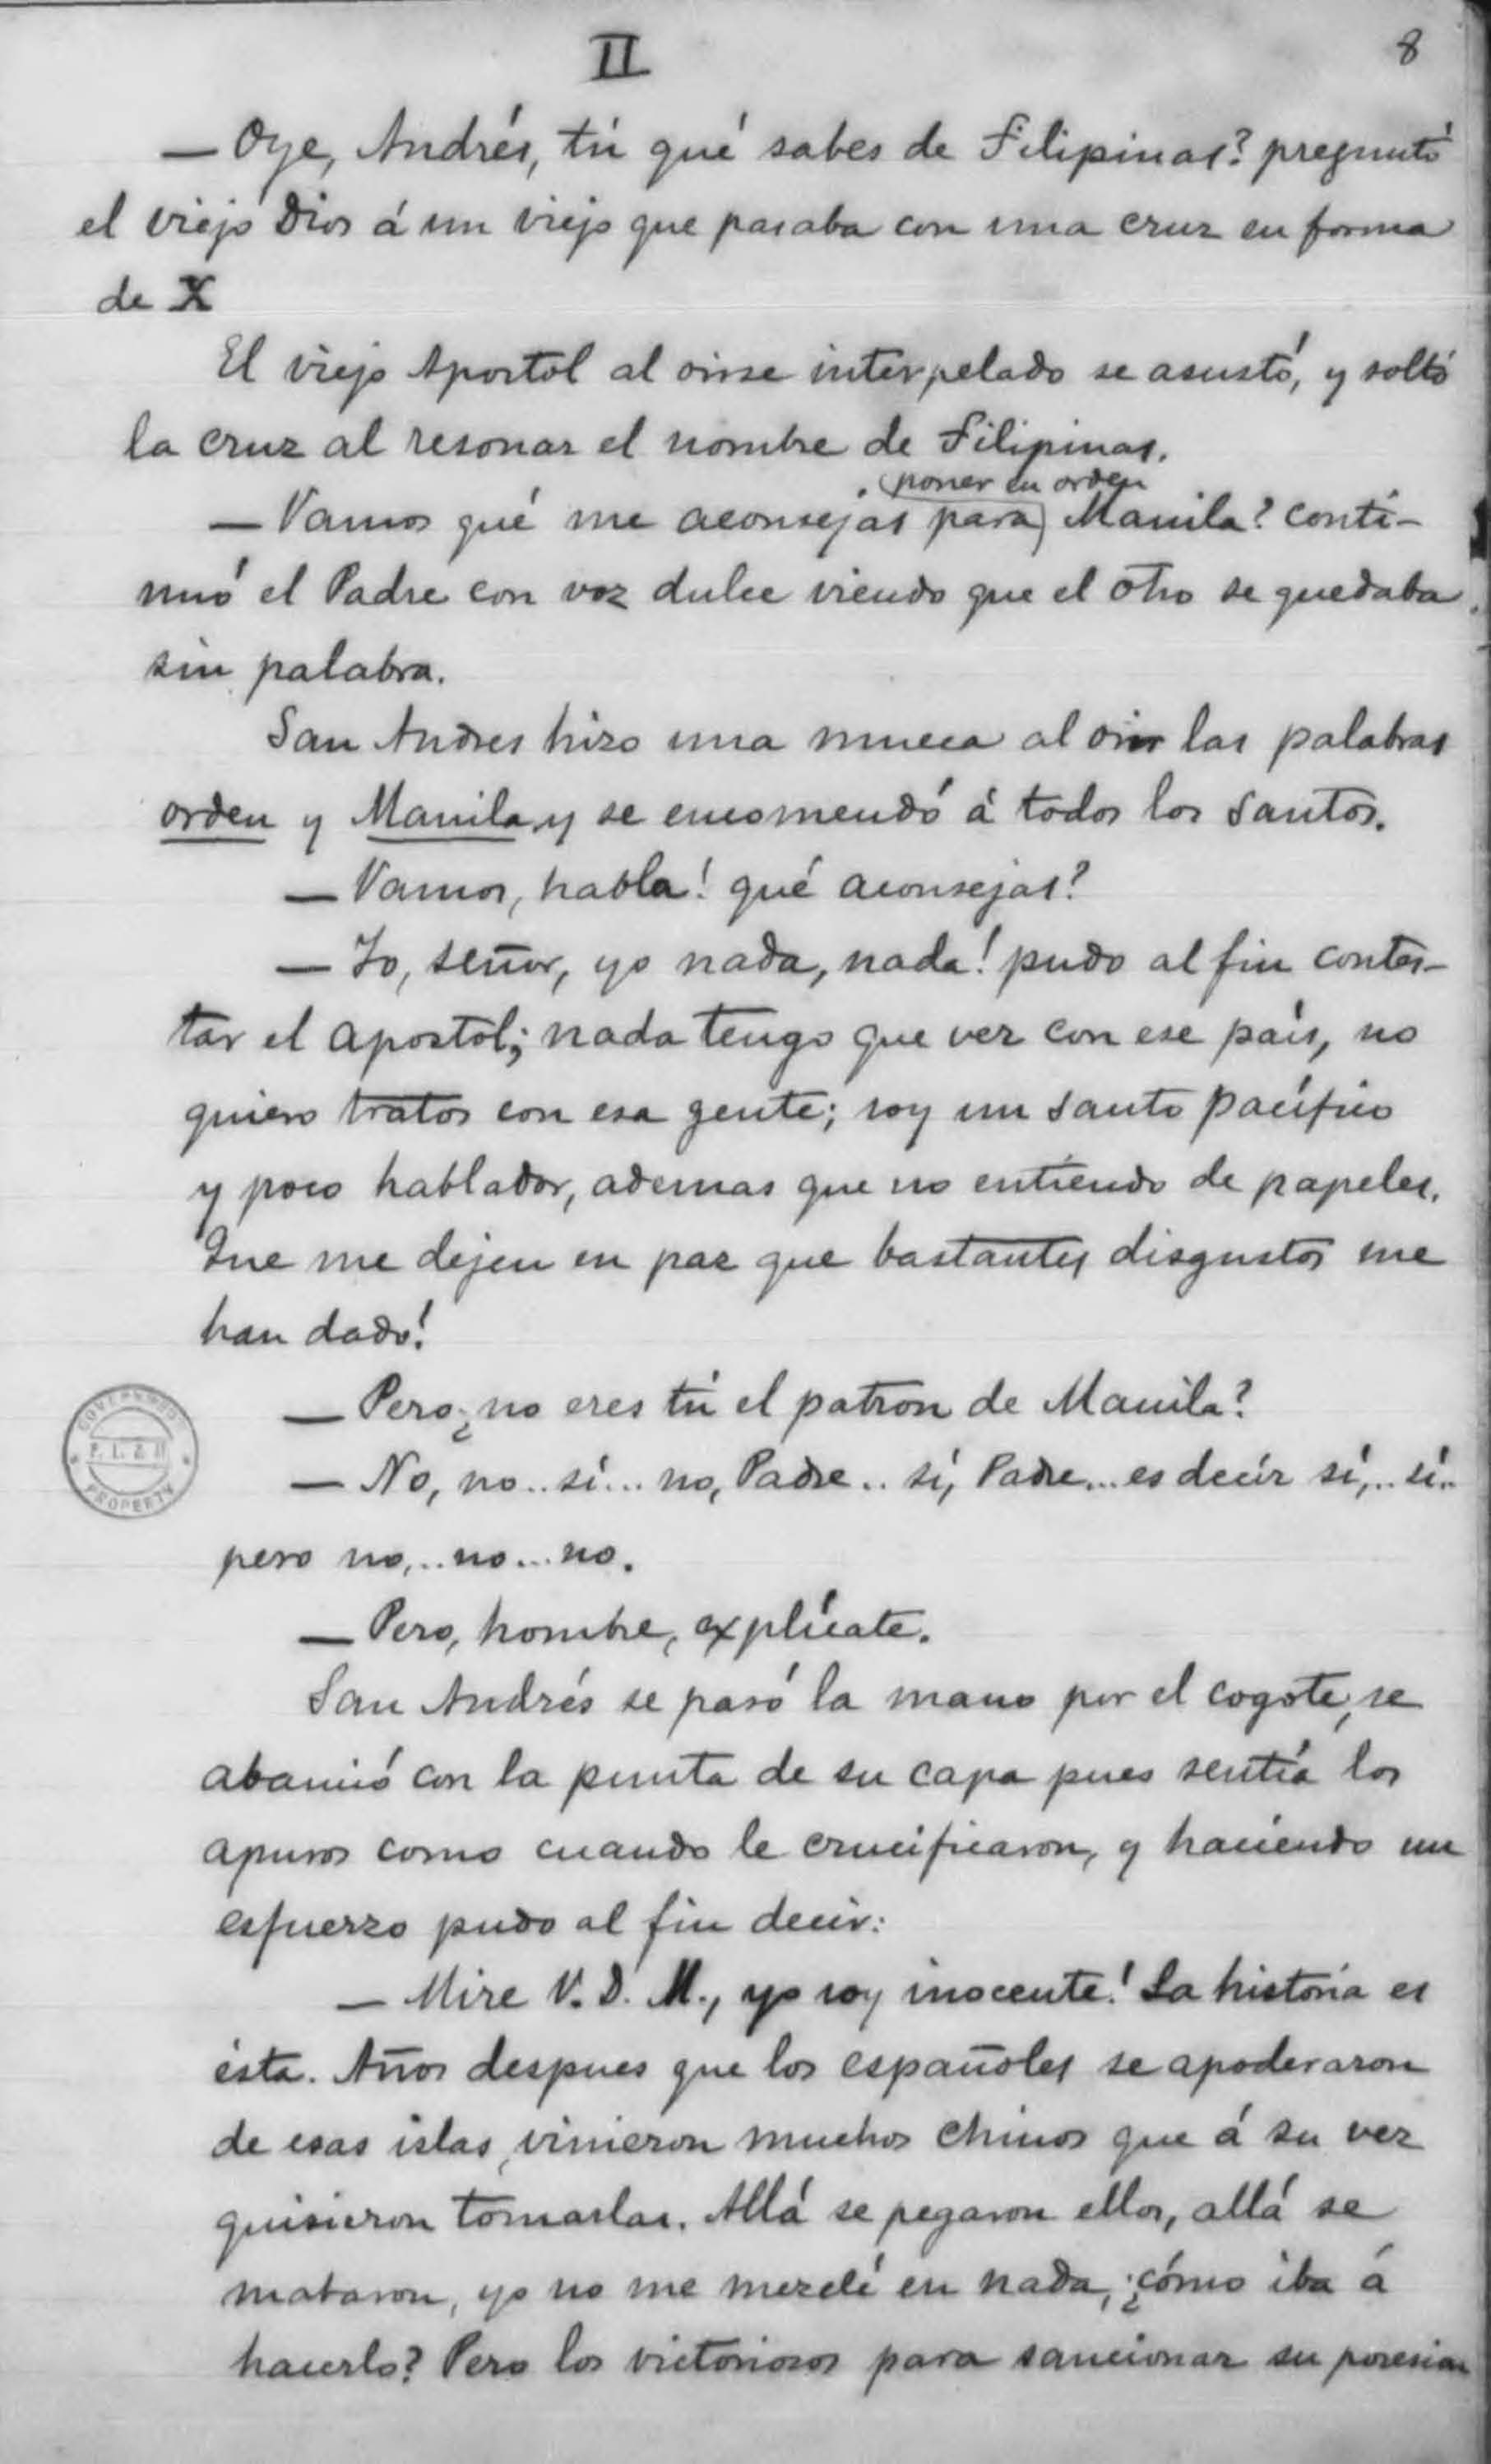 II
8
— Oye, Andrés, tú qué sabes de Filipinas? preguntó
el viejo Dios á un viejo que pasaba con una cruz en forma
de X
El viejo Apostol al oirse interpelado se asustó, y soltó
la cruz al resonar el nombre de Filipinas.
poner en orden
— Vamos qué me aconsejas para Manila? conti-
nuó el Padre con voz dulce viendo que el otro se quedaba
sin palabra.
San Andres hizo una mueca al oir las palabras
orden y Manila y se encomendó á todos los Santos.
— Vamos, habla! qué aconsejas?
— Yo, señor, yo nada, nada! pudo al fin contes-
tar el apostol; nada tengo que ver con ese país, no
quiero tratos con esa gente; soy un santo pacífico
y poco hablador, ademas que no entiendo de papeles.
Que me dejen en paz que bastantes disgustos me
han dado!
— Pero ¿no eres tú el patron de Manila?
— No, no.. sí... no, Padre.. sí, Padre... es decir sí,.. sí..
pero no,.. no... no.
— Pero, hombre, explícate.
San Andrés se pasó la mano por el cogote, se
abanicó con la punta de su capa pues sentía los
apuros como cuando le crucificaron, y haciendo un
esfuerzo pudo al fin decir:
— Mire V. D. M., yo soy inocente! La historia es
ésta. Años despues que los españoles se apoderaron
de esas islas, vinieron muchos chinos que á su vez
quisieron tomarlas. Allá se pegaron ellos, allá se
mataron, yo no me mezclé en nada, ¿cómo iba á
hacerlo? Pero los victoriosos para sancionar su posesion
P. L. & M
PROPERTY